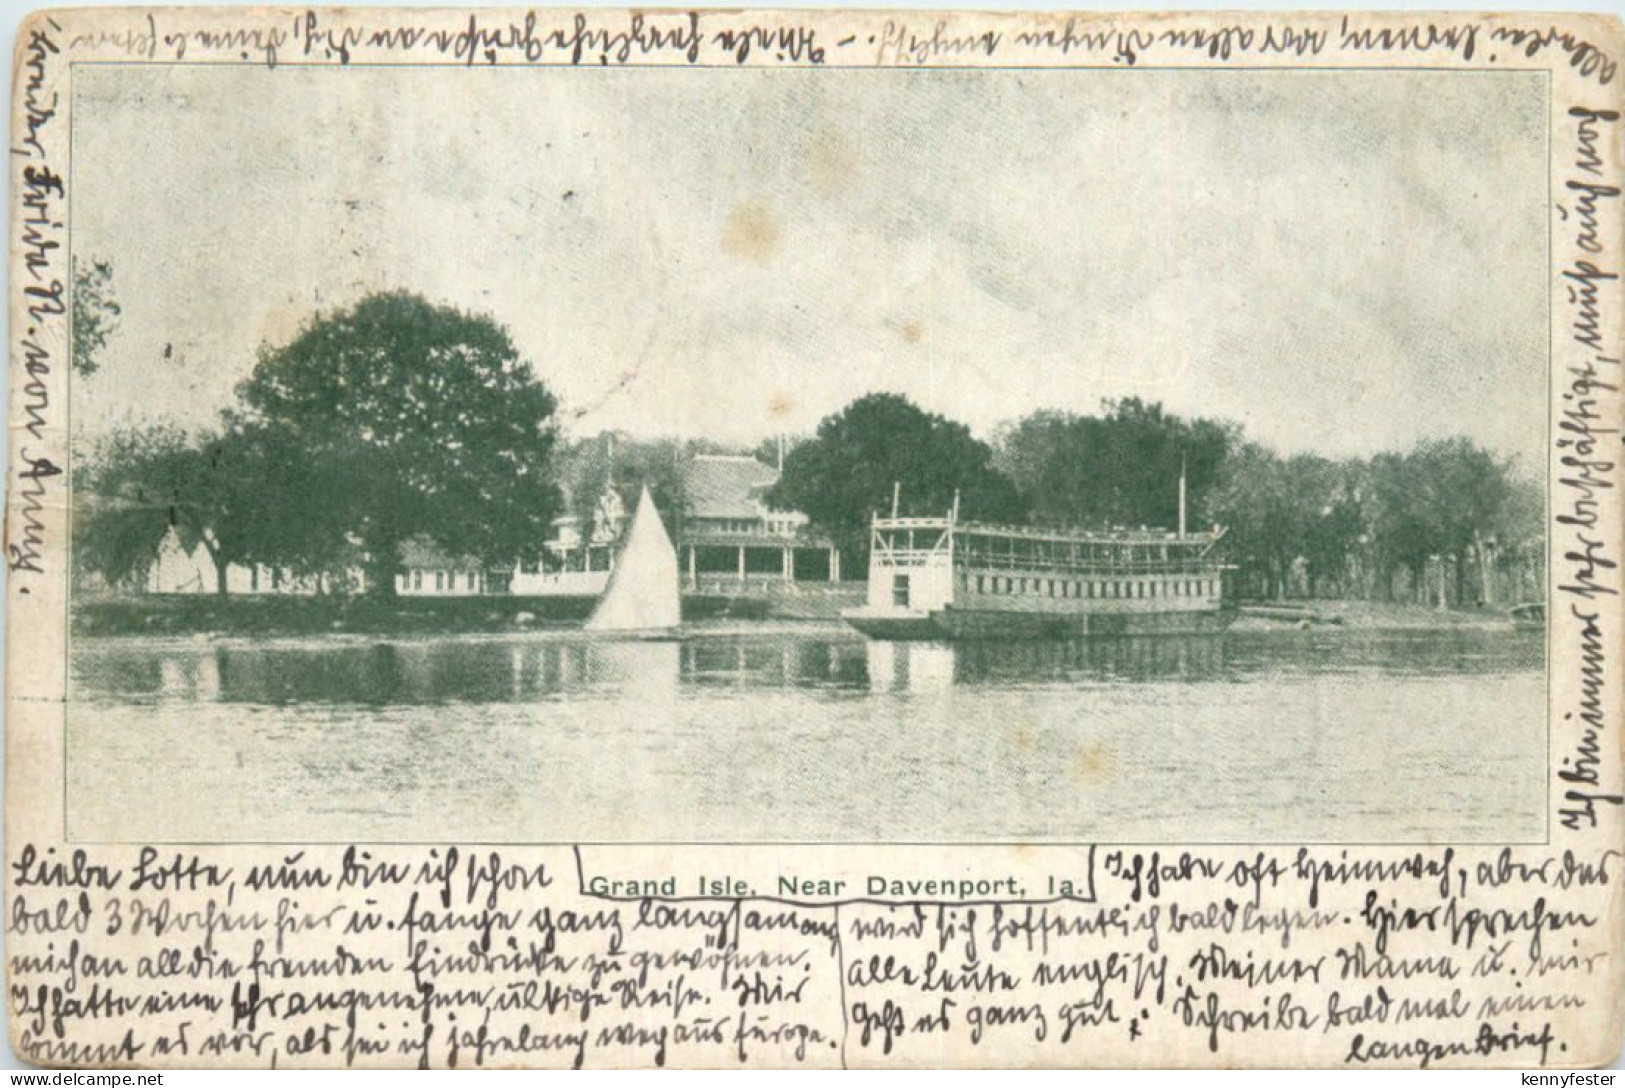 Liebe Lotte, nun bin ich schon
bald 3 Wochen hier u. fange ganz langsam an,
mich an all die fremden Eindrücke zu gewöhnen.
Ich hatte eine sehr angenehme, ulkige Reise. Mir
kommt es vor, als sei ich jahrelang weg aus Europa.
Grand Isle, Near Davenport, Ia.
Ich habe oft Heimweh, aber das
wird sich hoffentlich bald legen. Hier sprechen
alle Leute englisch. Meiner Mama u. mir
geht es ganz gut. Schreibe bald mal einen
langen Brief.
Ich bin immer sehr beschäftigt, muß auch noch
allerlei lernen, vor allen Dingen englisch. – Viele herzliche Grüße an Dich, Deine l. Eltern
Frida N. von Anny.
kennyfester
delcampe.net